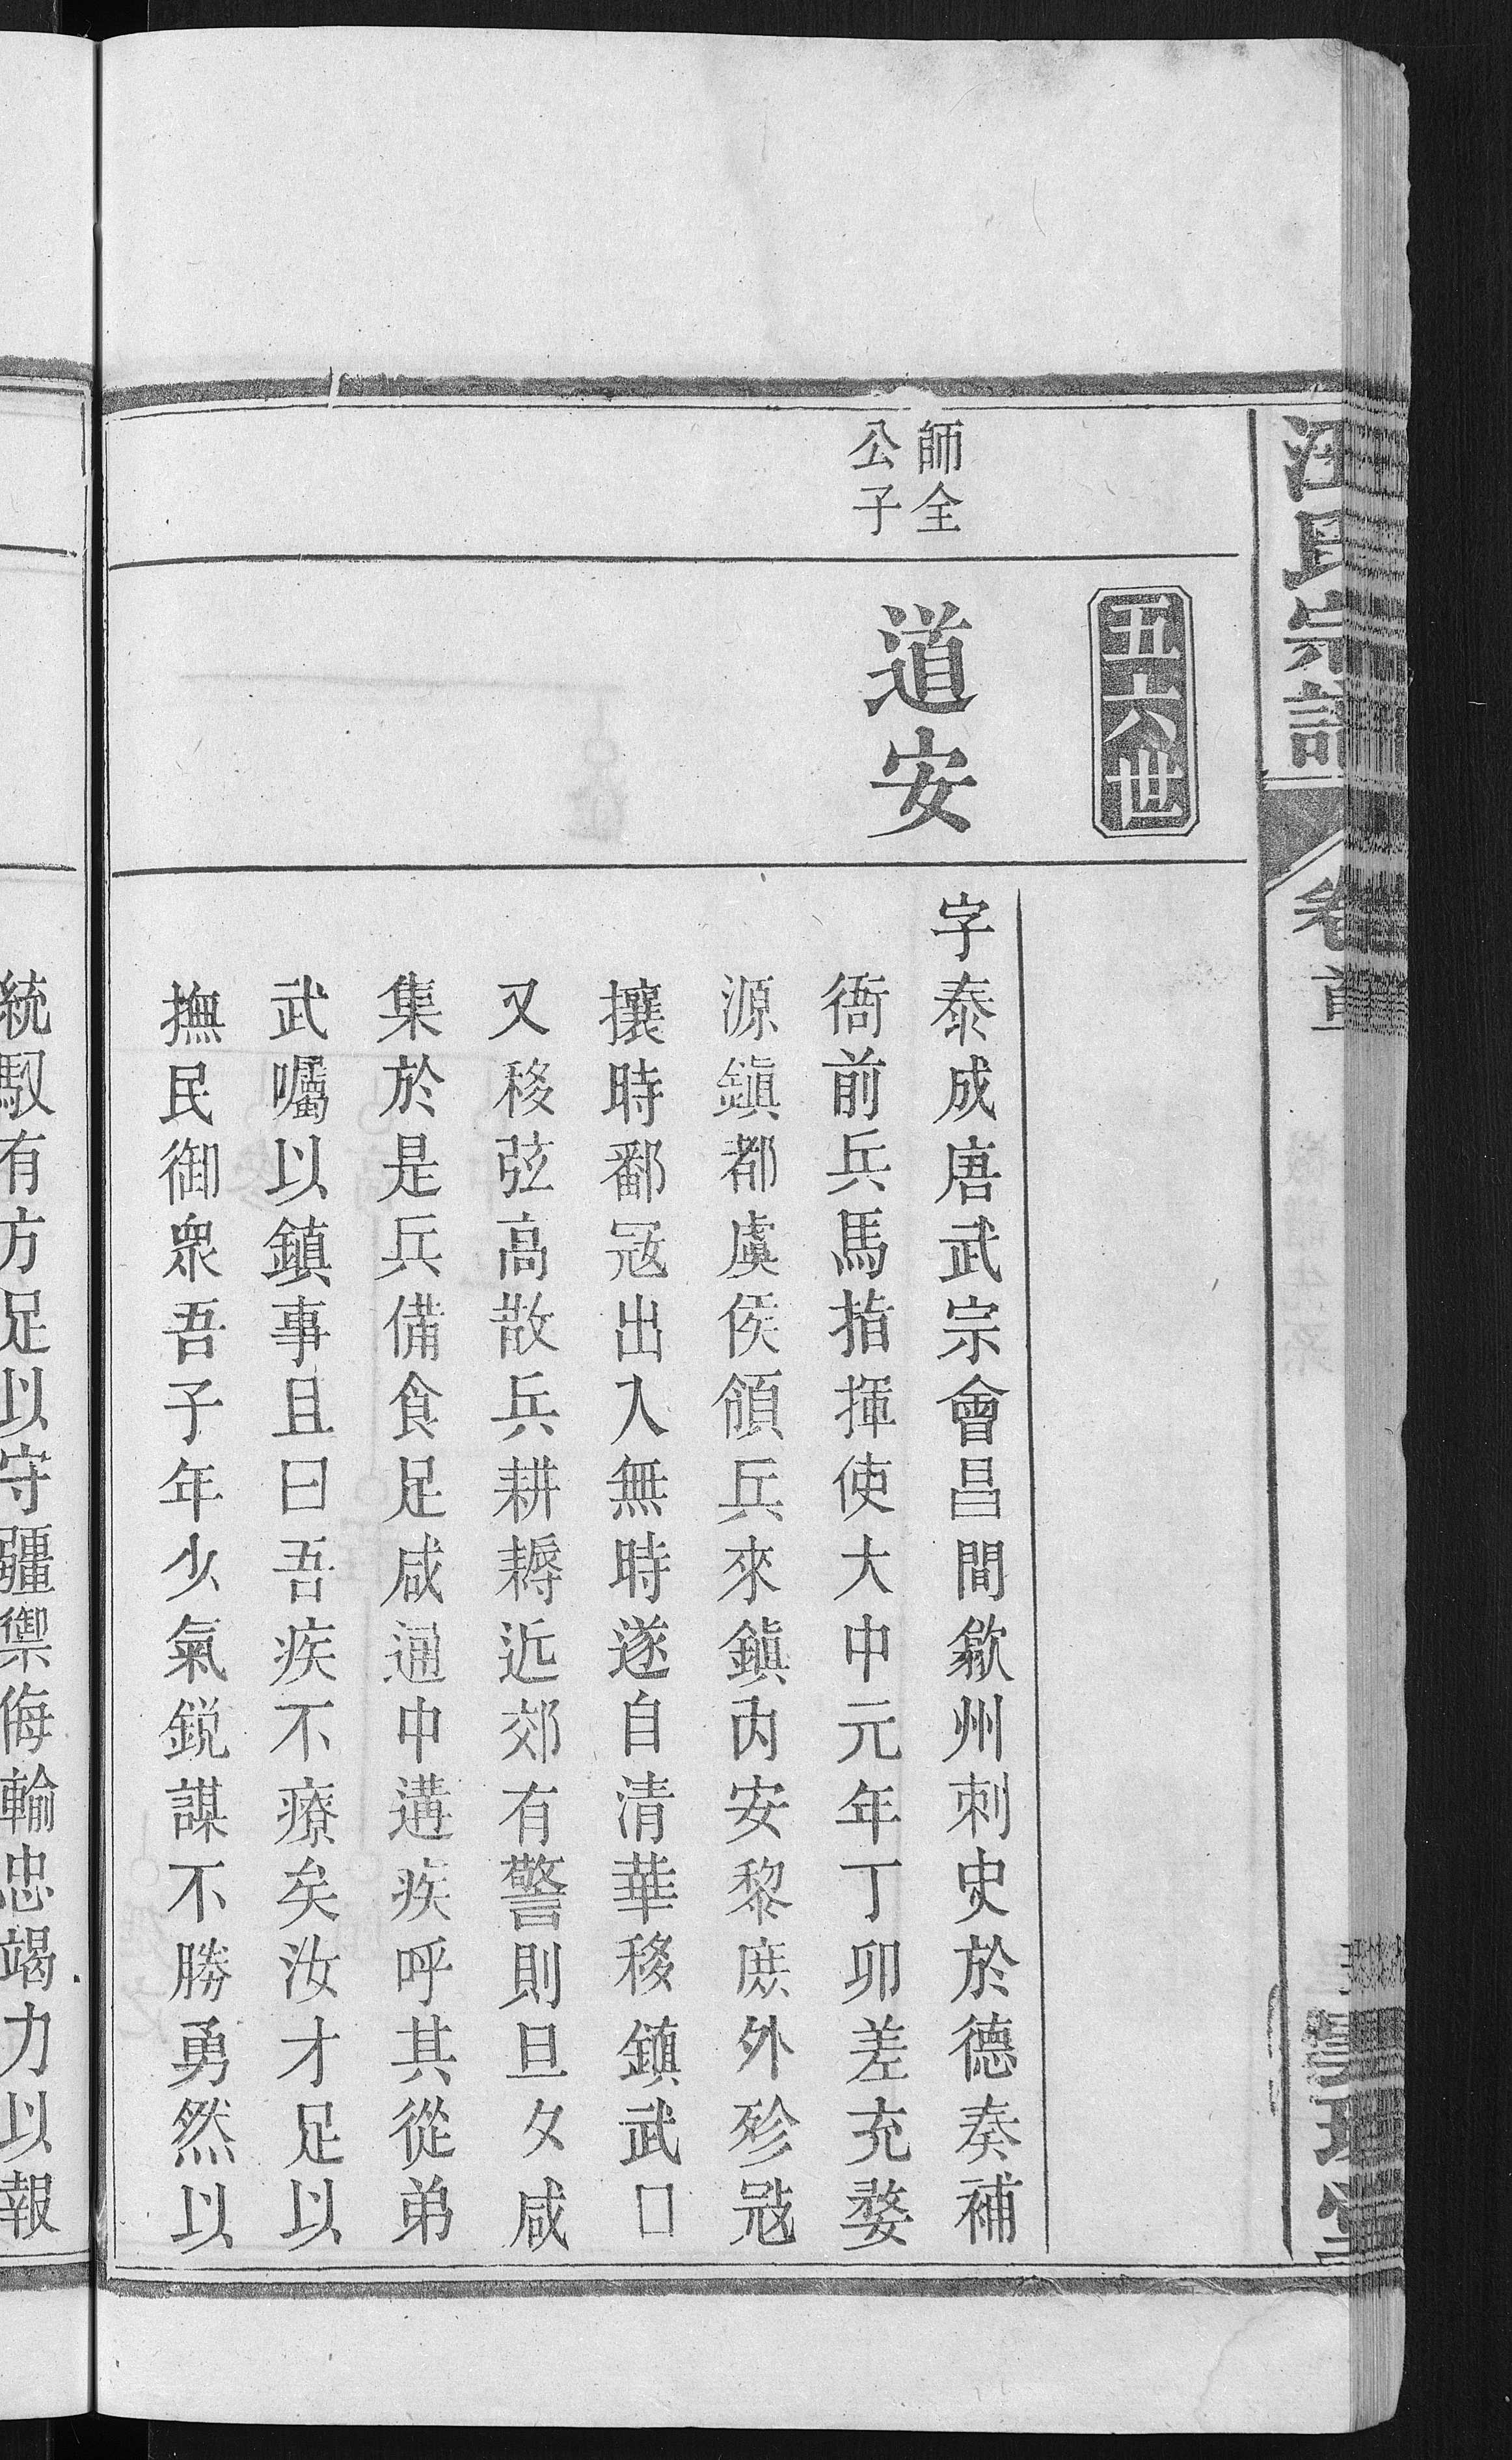 汪氏宗譜
卷首
五六世
師全
公子
道安
字泰成唐武宗會昌間歙州刺史於德奏補
衙前兵馬指揮使大中元年丁卯差充婺
源鎮都虞侯領兵來鎮內安黎庶外殄冦
攘時鄱冦出入無時遂自清華移鎮武口
又移弦高散兵耕耨近郊有警則旦夕咸
集於是兵備食足咸通中遘疾呼其從弟
武囑以鎮事且曰吾疾不療矣汝才足以
撫民御衆吾子年少氣銳謀不勝勇然以
統馭有方足以守疆禦侮輸忠竭力以報